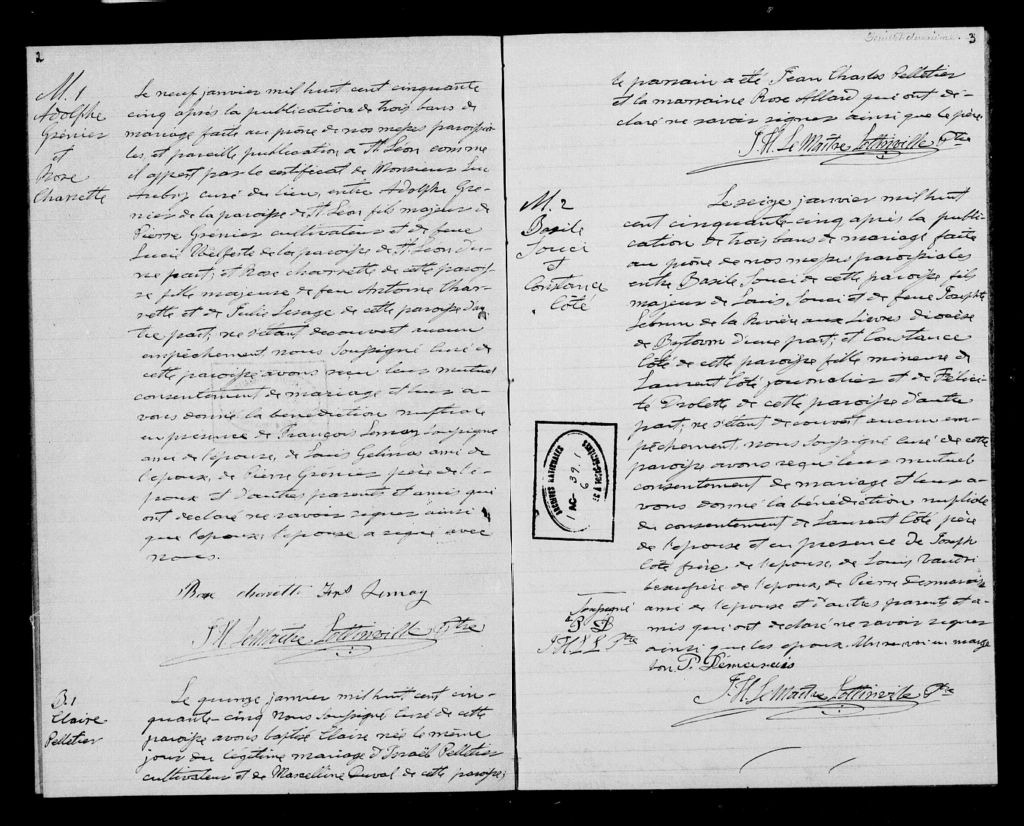 2
M. 1
Adolphe
Grenier
et
Rose
Charrette
Le neuf janvier mil huit cent cinquante
cinq après la publication de trois bans de
mariage faite au prône de nos messes paroissia-
les, et pareille publication a St Léon comme
il appert par le certificat de Monsieur Luc
Aubry curé du lieu, entre Adolphe Gre-
nier de la paroisse de St Léon fils majeur de
Pierre Grenier cultivateur et de feue
Lucie de la paroisse de St Léon d'u-
ne part; et Rose charrette de cette parois-
se fille majeure de feu Antoine Char-
rette et de Julie Lesage de cette paroisse d'au-
tre part; ne s'étant decouvert aucun
empêchement nous Soussigné curé de
cette paroisse avons reçu leur mutuel
consentement de mariage et leur a-
vons donné la bénédiction nuptiale
en presence de François Lemay Soussigné
ami de l'epouse, de Louis Gelinas ami de
l'epoux, de Pierre Grenier père de l'é-
poux et d'autres parents et amis qui
ont declaré ne savoir signer ainsi
que l'epoux; l'epouse a signé avec
nous.
Rose charrette Frs Lemay
J. H. Le Maître Lottinville Ptre
B. 1
Claire
Pelletier
Le quinze janvier mil huit cent cin-
quante-cinq nous Soussigné curé de cette
paroisse avons baptisé Claire née le même
jour du légitime mariage d'Israël Pelletier
cultivateur et de Marcelline Duval de cette paroisse;
3
le parrain a été Jean Charles Pelletier
et la marraine Rose Allard qui ont dé-
claré ne savoir signer ainsi que le père.
J. H. Le Maître Lottinville Ptre
M. 2
Basile
Souci
&
Constance
Côté
Le seize janvier mil huit
cent cinquante-cinq après la publi-
cation de trois bans de mariage faite
au prône de nos messes paroissiales
entre Basile Souci de cette paroisse fils
majeur de Louis Souci et de feue Josephte
Lebrun de la Rivière aux Lievres diocèse
de Bytown d'une part; et Constance
Côté de cette paroisse fille mineure de
Laurent Côté journalier et de Félici-
té Drolette de cette paroisse d'autre
part; ne s'étant decouvert aucun em-
pêchement, nous soussigné curé de cette
paroisse avons requis leur mutuel
consentement de mariage et leur a-
vons donné la bénédiction nuptiale
du consentement de Laurent Côté père
de l'epouse et en presence de Joseph
Côté frère de l'epouse, de Louis Vaudri
beaufrère de l'epoux, de Pierre Desmarais
ami de l'epouse et d'autres parents et a-
mis qui ont declaré ne savoir signer
ainsi que les epoux. Un renvoi en marge
bon P. Démarais
Soussigné
J H L L Ptre
J. H. Le Maître Lottinville Ptre
ARCHIVES NATIONALES
AC- 39.1
6